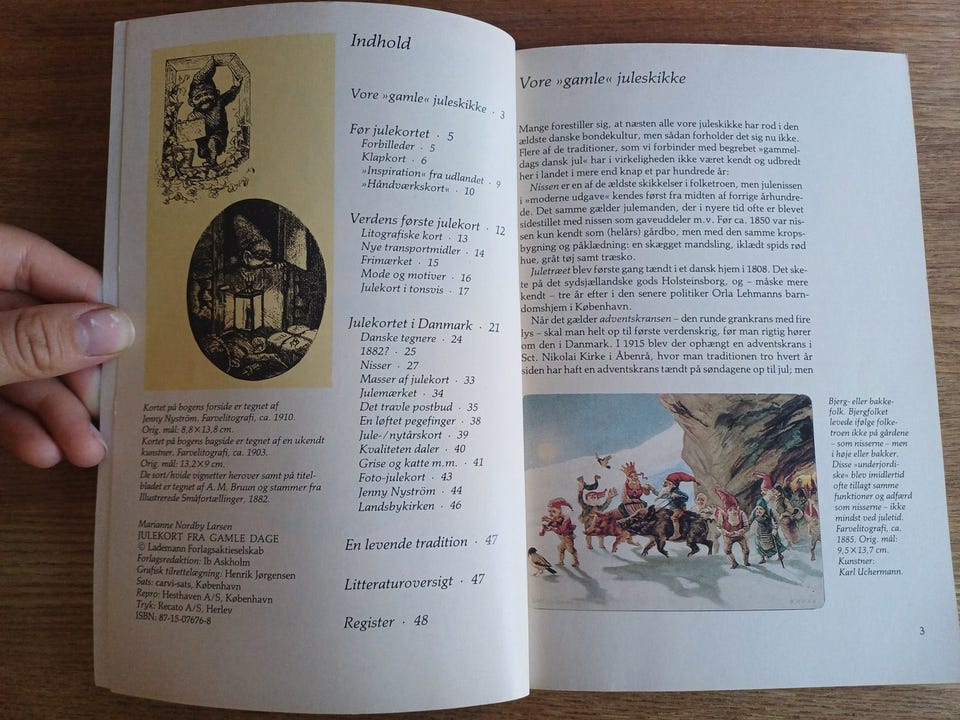 Indhold
Vore »gamle« juleskikke · 3
Før julekortet · 5
Forbilleder · 5
Klapkort · 6
»Inspiration« fra udlandet · 9
»Håndværkskort« · 10
Verdens første julekort · 12
Litografiske kort · 13
Nye transportmidler · 14
Frimærket · 15
Mode og motiver · 16
Julekort i tonsvis · 17
Julekortet i Danmark · 21
Danske tegnere · 24
1882? · 25
Nisser · 27
Masser af julekort · 33
Julemærket · 34
Det travle postbud · 35
En løftet pegefinger · 38
Jule-/nytårskort · 39
Kvaliteten daler · 40
Grise og katte m.m. · 41
Foto-julekort · 43
Jenny Nyström · 44
Landsbykirken · 46
En levende tradition · 47
Litteraturoversigt · 47
Register · 48
Kortet på bogens forside er tegnet af
Jenny Nyström. Farvelitografi, ca. 1910.
Orig. mål: 8,8×13,8 cm.
Kortet på bogens bagside er tegnet af en ukendt
kunstner. Farvelitografi, ca. 1903.
Orig. mål: 13,2×9 cm.
De sort/hvide vignetter herover samt på titel-
bladet er tegnet af A. M. Bruun og stammer fra
Illustrerede Småfortællinger, 1882.
Marianne Nordby Larsen
JULEKORT FRA GAMLE DAGE
© Lademann Forlagsaktieselskab
Forlagsredaktion: Ib Askholm
Grafisk tilrettelægning: Henrik Jørgensen
Sats: carvi-sats, København
Repro: Hesthaven A/S, København
Tryk: Recato A/S, Herlev
ISBN: 87-15-07676-8
Vore »gamle« juleskikke
Mange forestiller sig, at næsten alle vore juleskikke har rod i den
ældste danske bondekultur, men sådan forholder det sig nu ikke.
Flere af de traditioner, som vi forbinder med begrebet »gammel-
dags dansk jul« har i virkeligheden ikke været kendt og udbredt
her i landet i mere end knap et par hundrede år:
Nissen er en af de ældste skikkelser i folketroen, men julenissen
i »moderne udgave« kendes først fra midten af forrige århundre-
de. Det samme gælder julemanden, der i nyere tid ofte er blevet
sidestillet med nissen som gaveuddeler m.v. Før ca. 1850 var nis-
sen kun kendt som (helårs) gårdbo, men med den samme krops-
bygning og påklædning: en skægget mandsling, iklædt spids rød
hue, gråt tøj samt træsko.
Juletræet blev første gang tændt i et dansk hjem i 1808. Det ske-
te på det sydsjællandske gods Holsteinsborg, og – måske mere
kendt – tre år efter i den senere politiker Orla Lehmanns barn-
domshjem i København.
Når det gælder adventskransen – den runde grankrans med fire
lys – skal man helt op til første verdenskrig, før man rigtig hører
om den i Danmark. I 1915 blev der ophængt en adventskrans i
Sct. Nikolai Kirke i Åbenrå, hvor man traditionen tro hvert år
siden har haft en adventskrans tændt på søndagene op til jul; men
Bjerg- eller bakke-
folk. Bjergfolket
levede ifølge folke-
troen ikke på gårdene
– som nisserne – men
i høje eller bakker.
Disse »underjordi-
ske« blev imidlertid
ofte tillagt samme
funktioner og adfærd
som nisserne – ikke
mindst ved juletid.
Farvelitografi, ca.
1885. Orig. mål:
9,5×13,7 cm.
Kunstner:
Karl Uchermann.
3